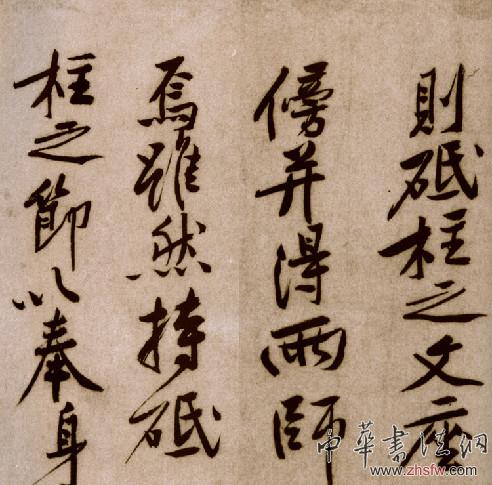 則砥柱之文座
傍并得兩師
焉雖然持砥
柱之節以奉身
中華書法網
www.zhsfw.com